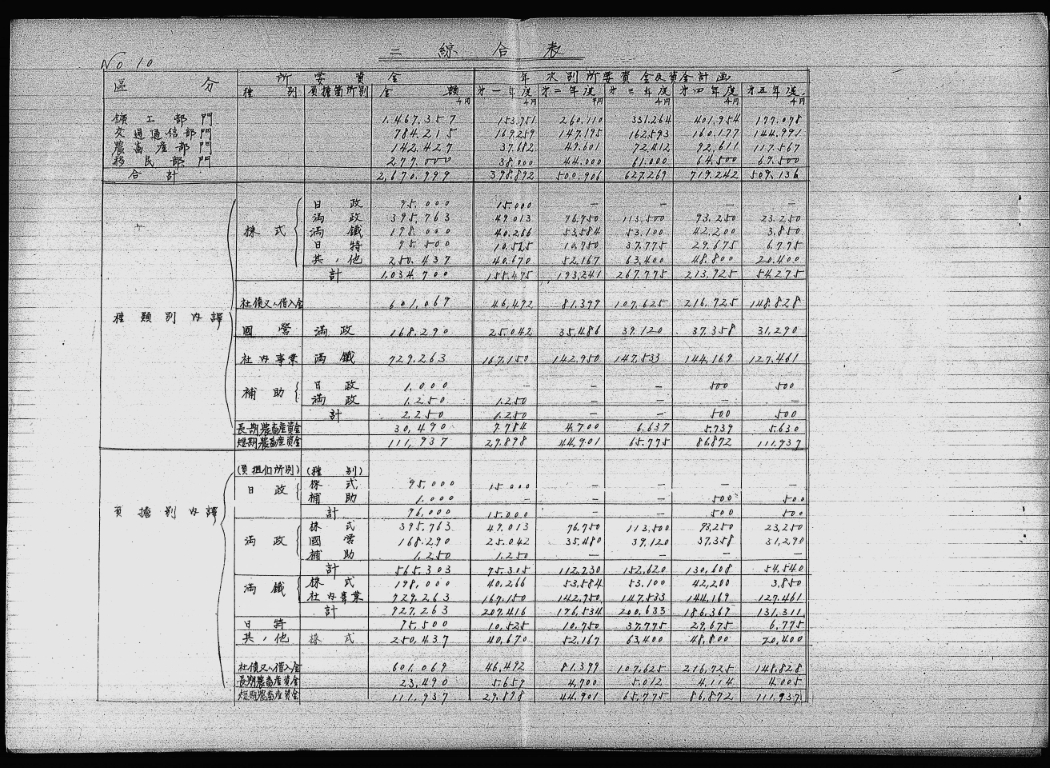 No 10
二 綜合表
區分 所要資金 年次別所要資金及資金計画
種別 負擔箇所別 金額 才一年度 才二年度 才三年度 才四年度 才五年度
千円 千円 千円 千円 千円 千円
鑛工部門 1,467,357 153,951 260,110 331,264 401,954 177,098
交通通信部門 784,215 169,259 147,195 162,593 160,177 144,991
農畜産部門 142,427 37,682 49,601 72,412 92,611 117,567
移民部門 277,000 38,000 44,000 61,000 64,500 69,500
合計 2,670,999 398,892 500,906 627,269 719,242 509,136
種類別内譯
株式 日政 95,000 15,000 — — — —
満政 395,763 49,013 76,950 113,500 93,250 23,250
満鐵 198,000 40,266 53,584 53,100 42,200 3,850
日特 95,500 10,525 10,750 37,775 29,675 6,775
其ノ他 250,437 40,670 52,167 63,400 48,800 20,400
計 1,034,700 155,475 193,241 267,775 213,925 54,275
社債又ハ借入金 601,069 46,492 81,399 107,625 216,725 148,828
國営 満政 168,290 25,042 35,486 39,120 37,358 31,290
社内事業 満鐵 729,263 167,150 142,950 147,533 144,169 127,461
補助 日政 1,000 — — — 500 500
満政 1,250 1,250 — — — —
計 2,250 1,250 — — 500 500
長期農畜産資金 30,490 7,784 4,700 6,637 5,739 5,630
短期農畜産資金 111,937 29,898 44,901 65,775 86,872 111,937
負擔別内譯
(負担個所別) (種別)
日政 株式 95,000 15,000 — — — —
補助 1,000 — — — 500 500
計 96,000 15,000 — — 500 500
満政 株式 395,763 49,013 76,750 113,500 93,250 23,250
國営 168,290 25,042 35,480 39,120 37,358 31,290
補助 1,250 1,250 — — — —
計 565,303 75,305 112,230 152,620 130,608 54,540
満鐵 株式 198,000 40,266 53,584 53,100 42,200 3,850
社内事業 929,263 167,150 142,950 147,533 144,169 127,461
計 927,263 207,416 196,534 200,633 186,369 131,311
日特 95,500 10,525 10,750 37,775 29,675 6,775
其ノ他 株式 250,437 40,670 52,167 63,400 48,800 20,400
社債又ハ借入金 601,069 46,492 81,399 107,625 216,725 148,828
長期農畜産資金 23,490 5,657 4,700 5,012 4,114 4,005
短期農畜産資金 111,937 29,898 44,901 65,775 86,872 111,937